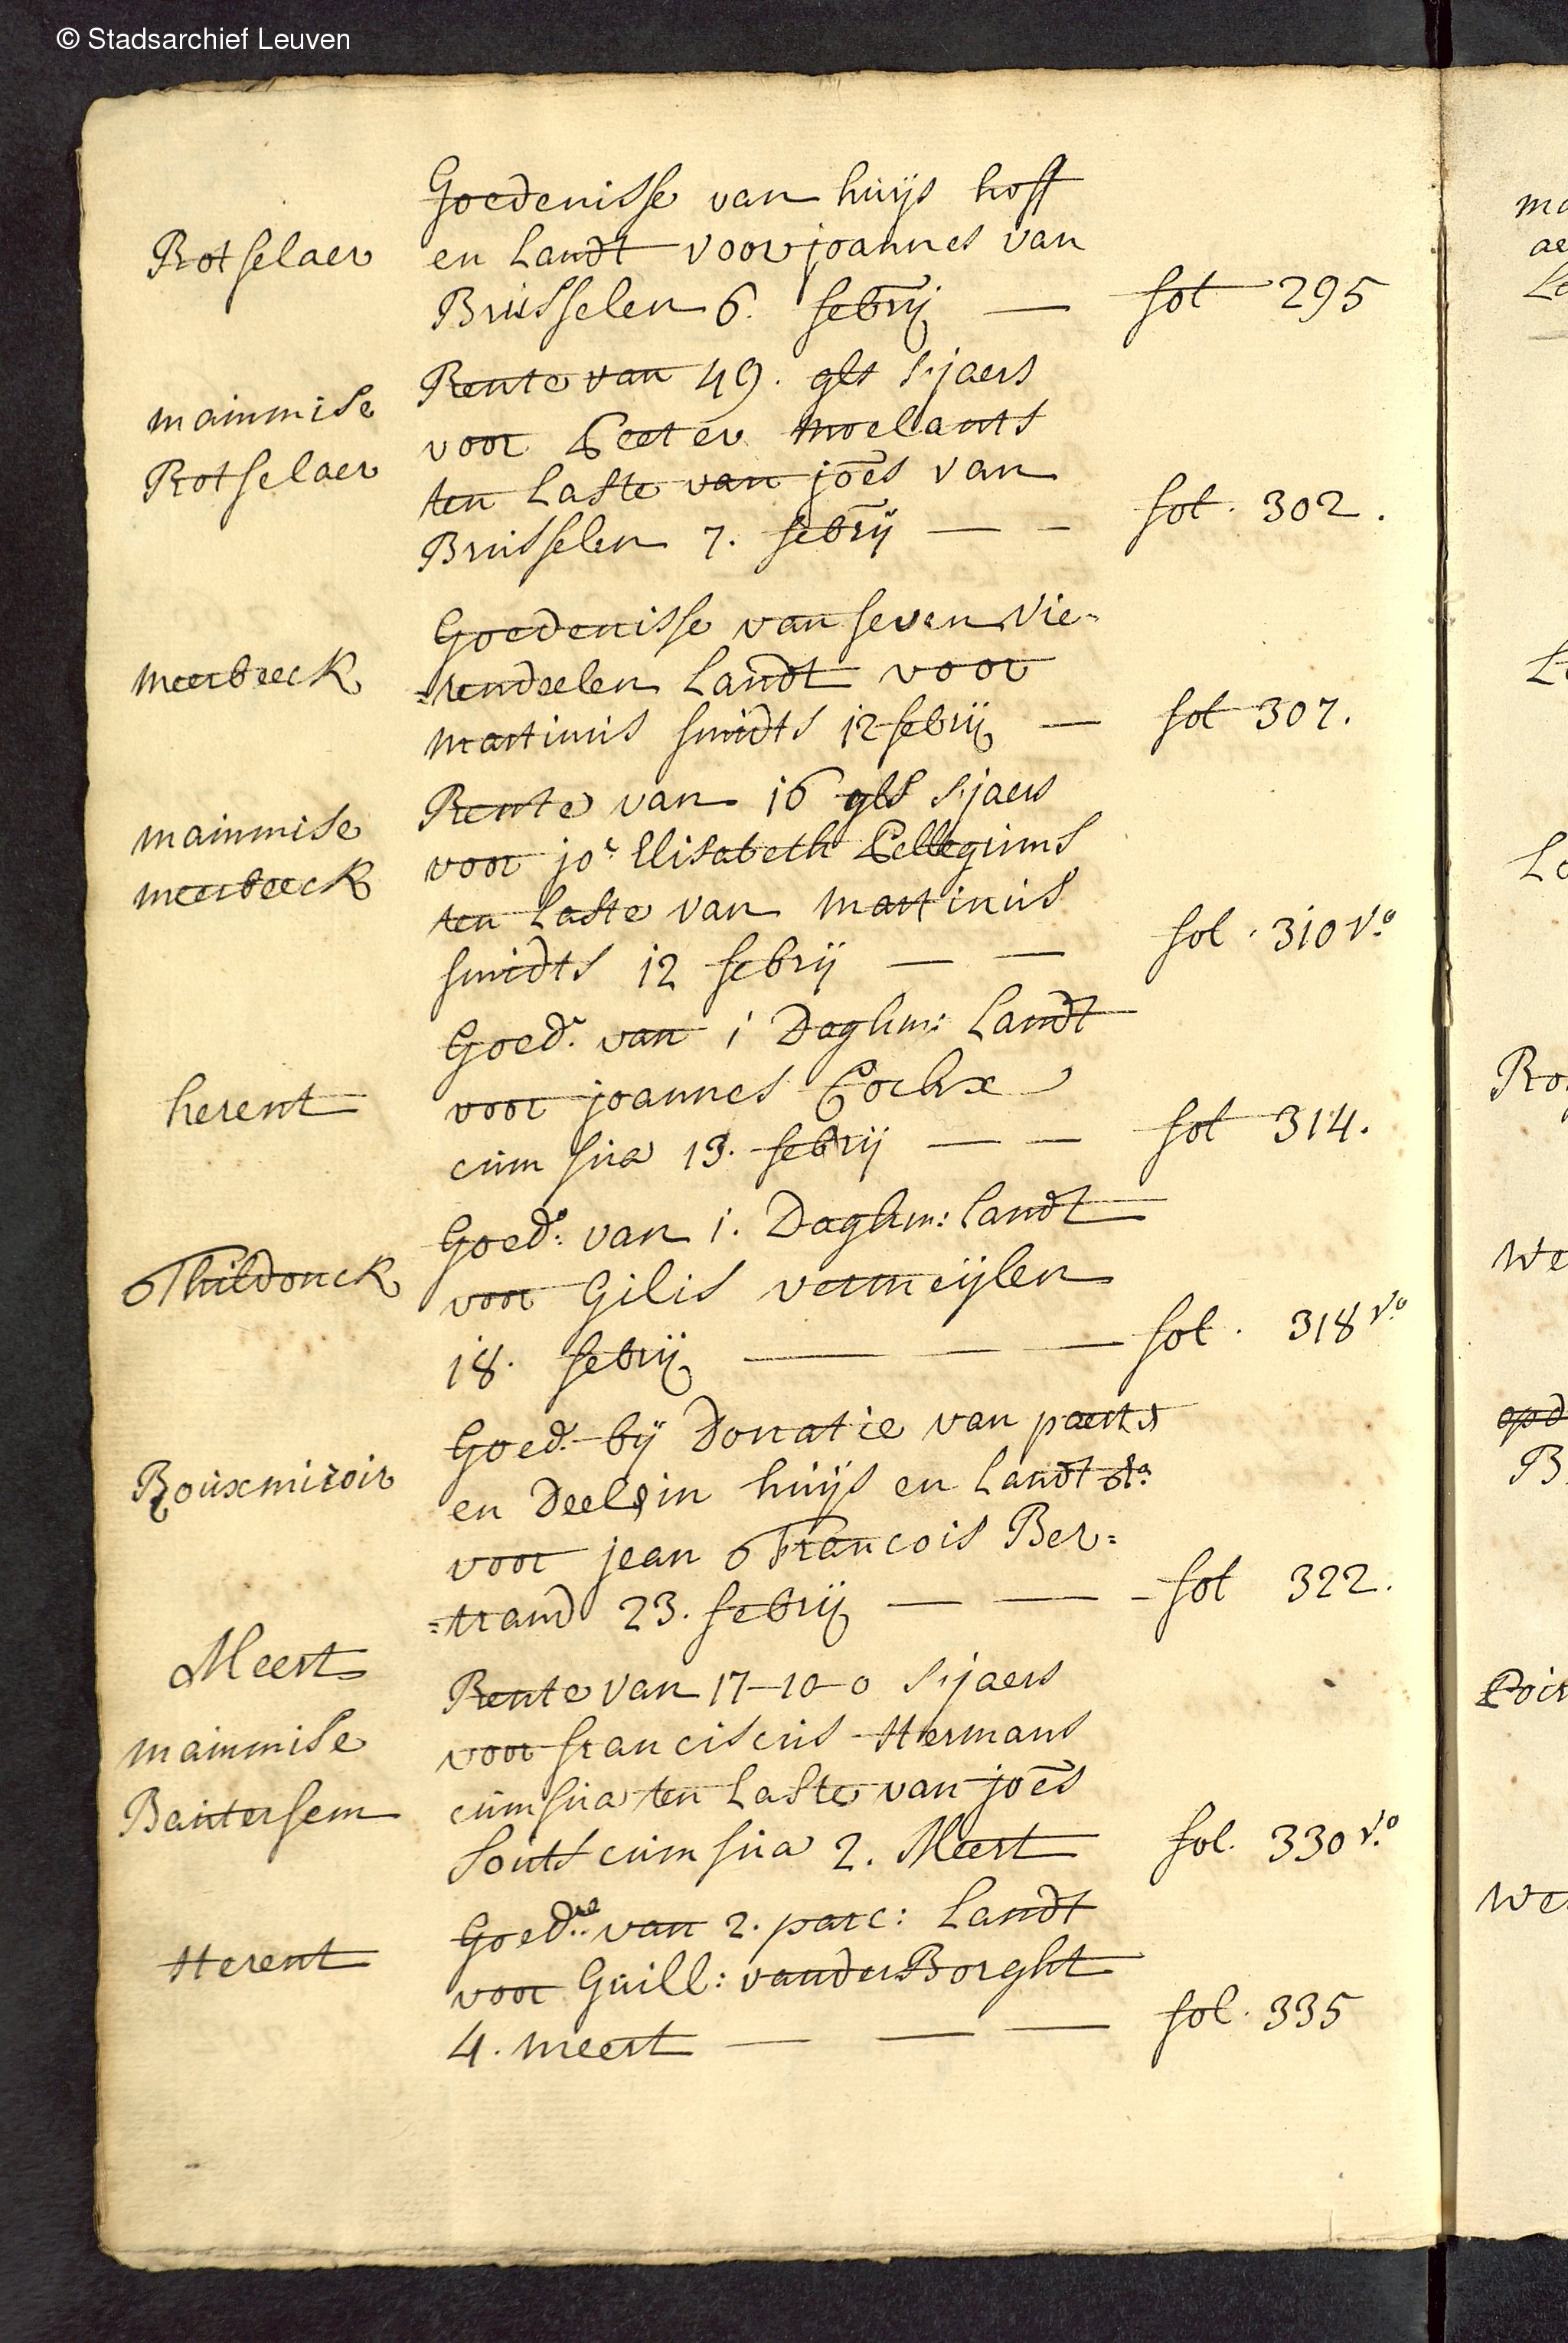 © Stadsarchief Leuven
Goedenisse van huijs hoff
Rotselaer en Landt voor joannes van
Brusselen 6. febrij — fol 295
Rente van 49. gls s'jaers
mainmise voor Peeter moelants
Rotselaer ten Laste van joēs van
Brusselen 7. febrij — - fol. 302.
Goedenisse van seven vie=
meerbeeck =rendeelen Landt voor
martinus smidts 12 febrij — fol 307.
Rente van 16 gls s'jaers
mainmise voor jor Elisabeth Pellegrims
meerbeeck ten Laste van martinus
smidts 12 febrij — — fol. 310 vo
Goed. van 1 Daghm: Landt
herent voor joannes Cockx
cum sua 13. febrij — — fol 314.
Goed. van 1. Daghm: Landt
Thildonck voor Gilis vermeijlen
18. febrij — — — fol. 318 vo
Goed. bij Donatie van paert
Rouxmiroir en Deel in huijs en Landt
voor jean Francois Ber=
=trand 23. febrij — — - fol 322.
Meert
Rente van 17-10-0 s'jaers
mainmise voor franciscus Hermans
Bautersem cum sua ten Laste van joēs
Souts cum sua 2. Meert fol. 330 vo
Goed.re van 2. parc: Landt
Herent voor Guill: vander Borght
4. meert — — — fol. 335